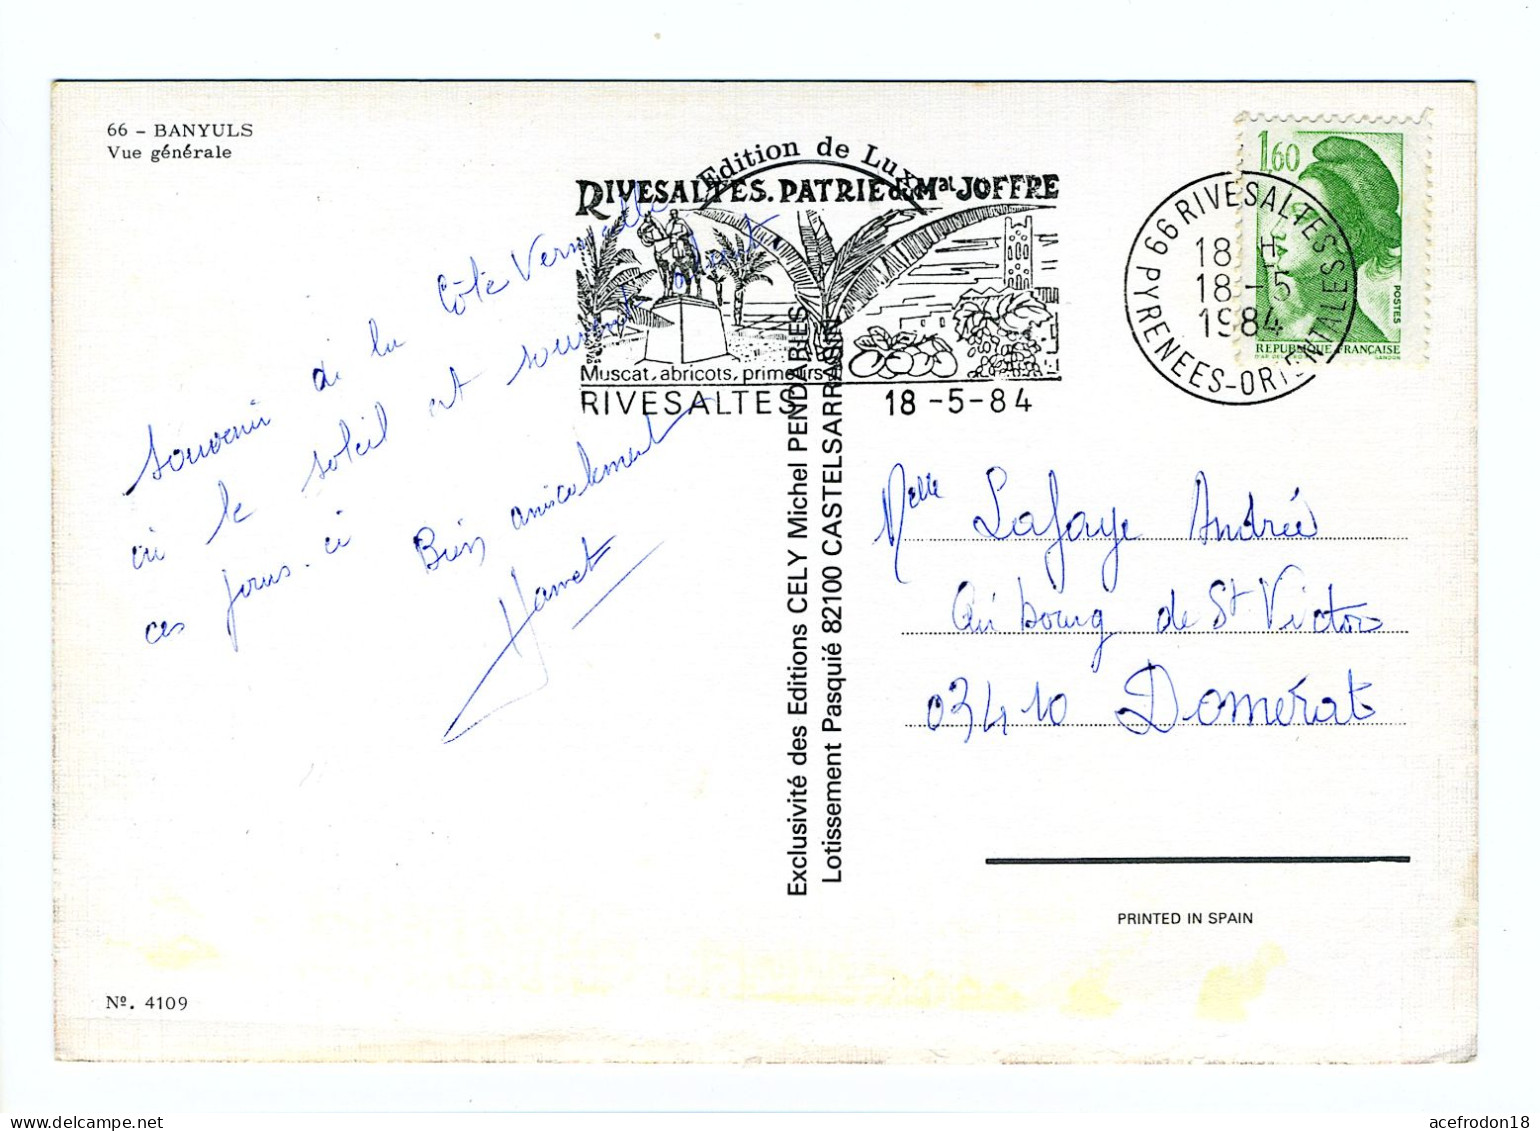 66 - BANYULS
Vue générale
Edition de Luxe
RIVESALTES. PATRIE du Mal JOFFRE
Muscat, abricots, primeurs
RIVESALTES 18-5-84
66 RIVESALTES
18 H
18-5
1984
PYRENEES-ORIENTALES
1,60
POSTES
REPUBLIQUE FRANÇAISE
GANDON
Souvenir de la Côte Vermeille
où le soleil est souvent absent
ces jours-ci
Bien amicalement
Exclusivité des Editions CELY Michel PENDARIES
Lotissement Pasquié 82100 CASTELSARRASIN
Melle Lafaye Andrée
Au bourg de St Victor
03410 Domérat
PRINTED IN SPAIN
Nº. 4109
acefrodon18